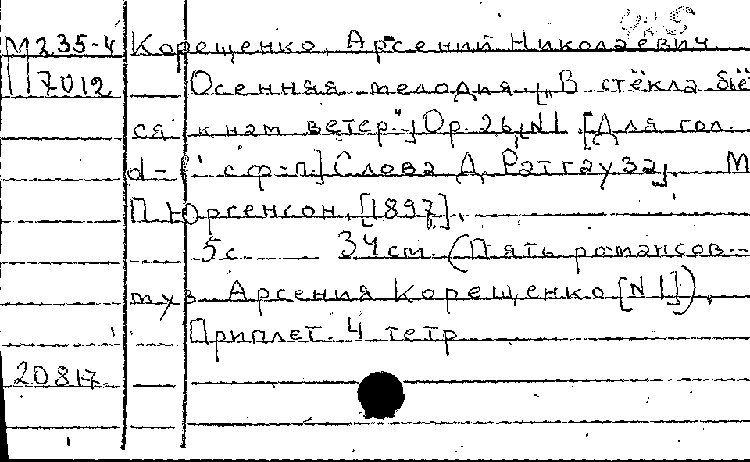 М235-4 Корещенко, Арсений Николаевич
7012 Осенняя мелодия ["В стёкла бьё
ся к нам ветер"] Op. 26, N1 [Для гол.
с ф-п.] Слова Д. Ратгауза]. М
П. Юргенсон, [1897].
5 с. 34 см. (Пять романсов
муз. Арсения Корещенко [N1]).
Приплет. 4 тетр
20817